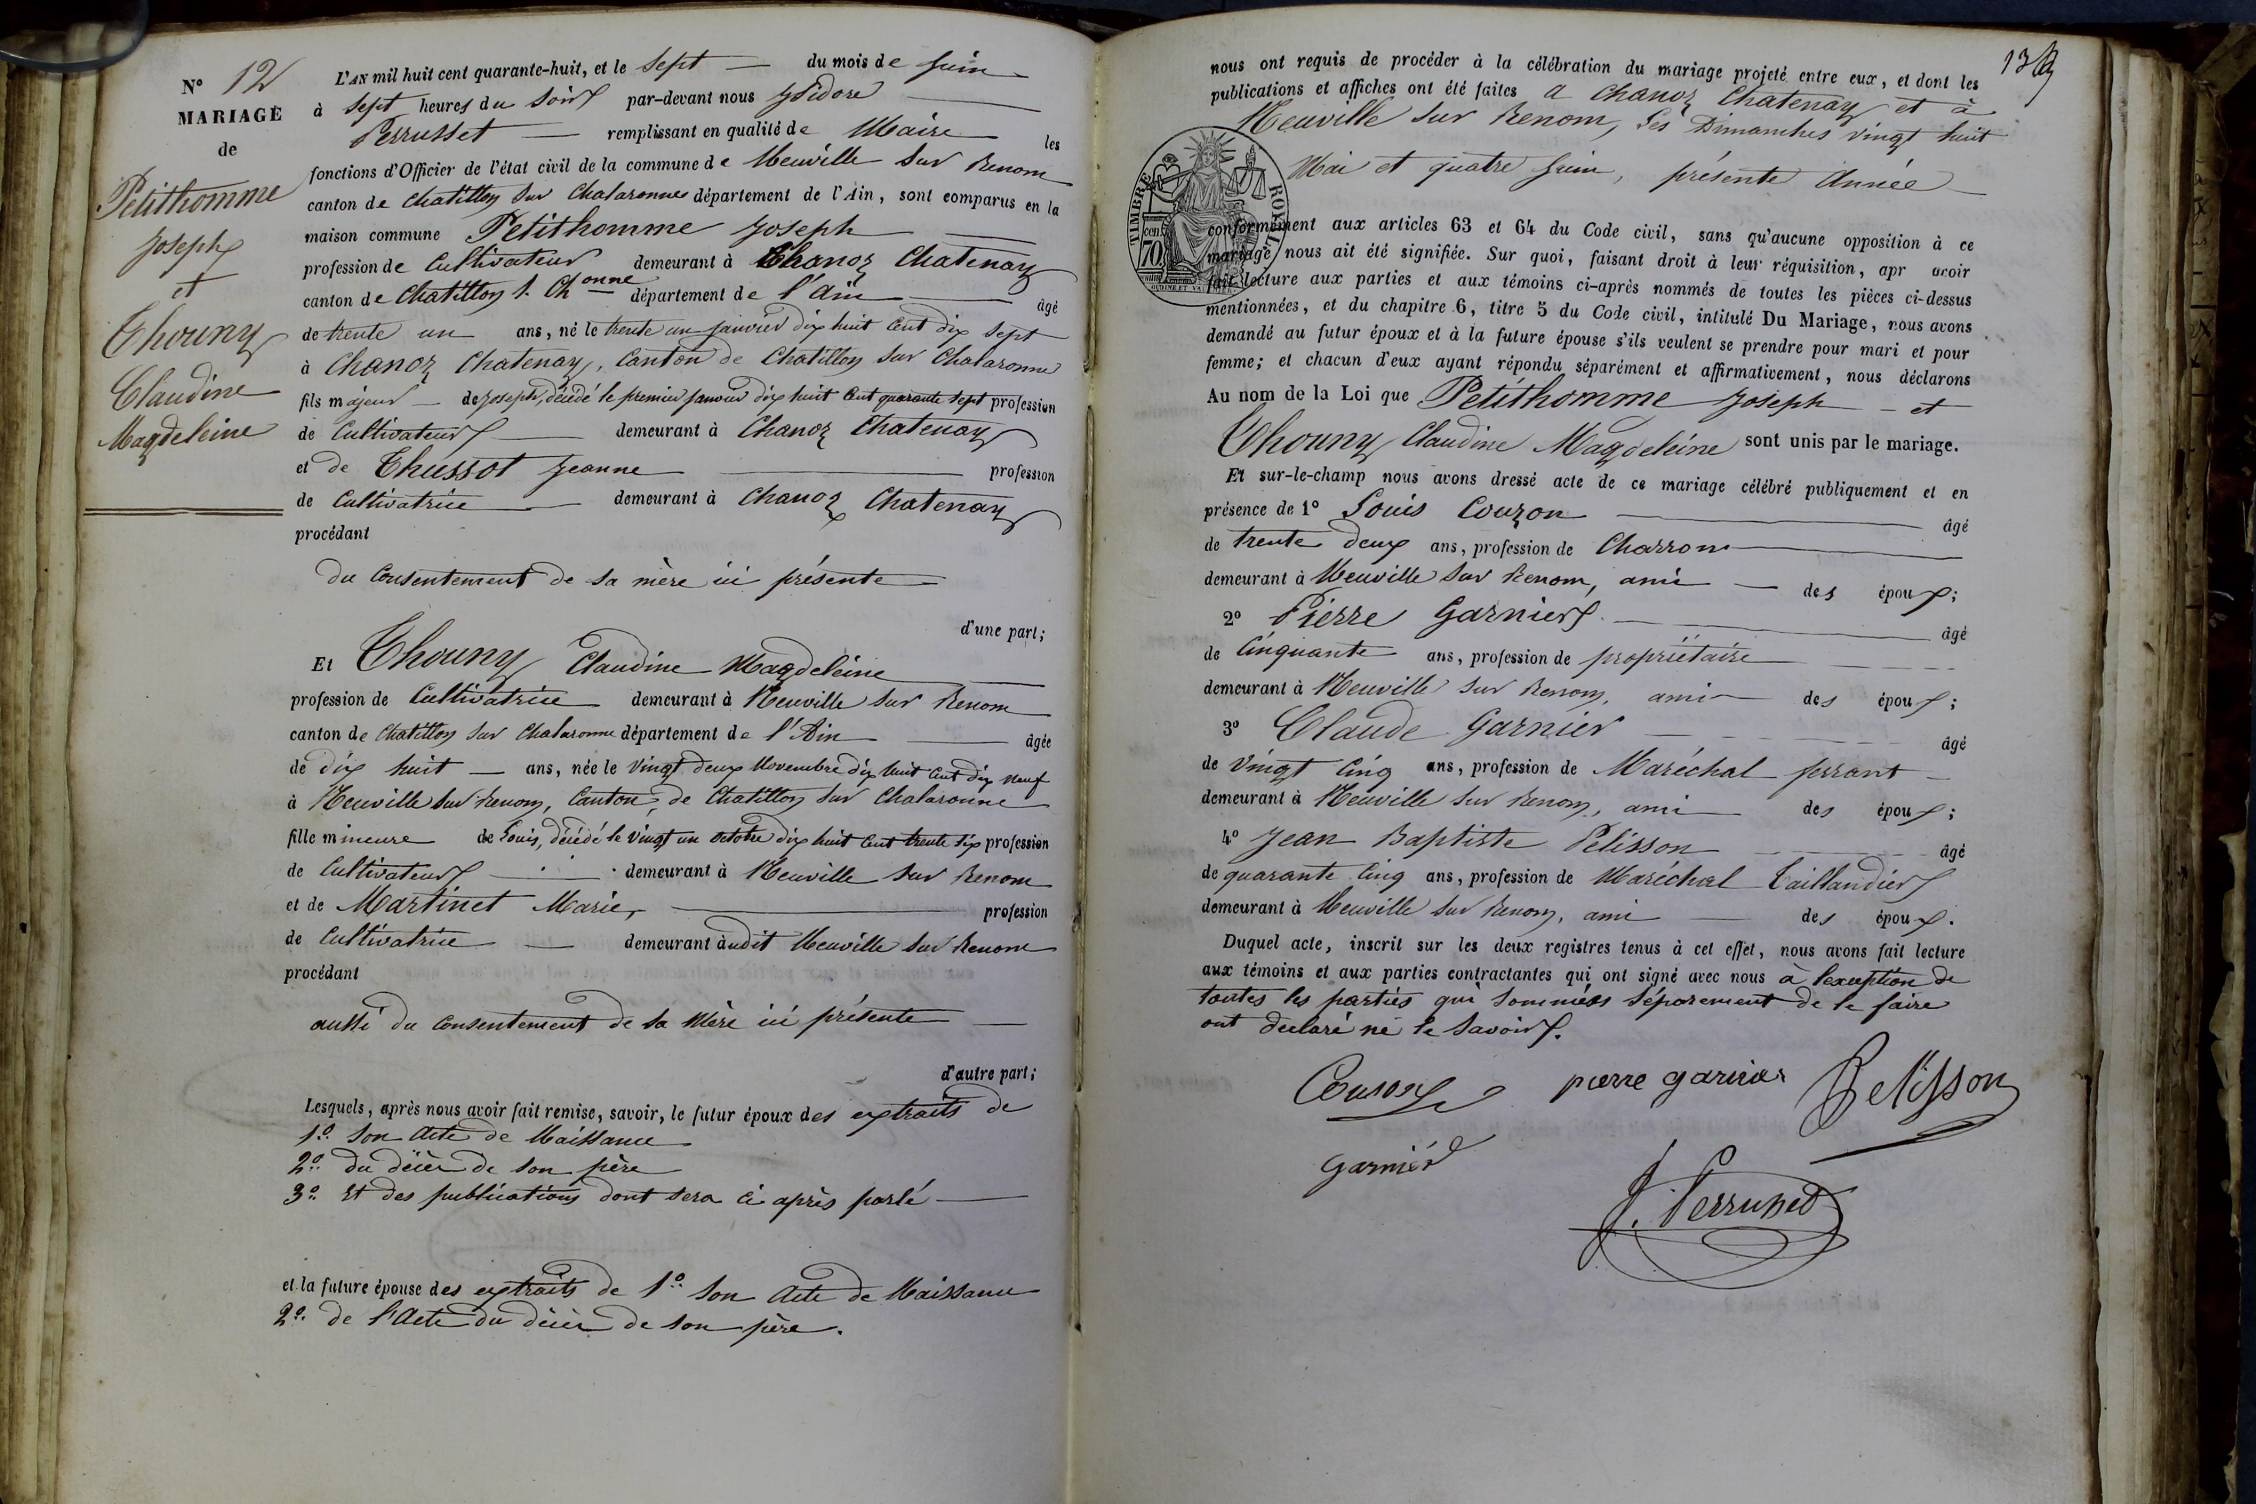 N° 12
MARIAGE
de
Petithomme
Joseph
et
Thouny
Claudine
Magdeleine
L'AN mil huit cent quarante-huit, et le sept du mois de Juin
à sept heures du soir par-devant nous Isidore
Perrusset remplissant en qualité de Maire les
fonctions d'Officier de l'état civil de la commune de Neuville sur Renom
canton de Chatillon sur Chalaronne département de l'Ain, sont comparus en la
maison commune Petithomme Joseph
profession de Cultivateur demeurant à Chanoz Chatenay
canton de Chatillon s. Chonne département de l'Ain âgé
de trente un ans, né le trente un janvier dix huit cent dix sept
à Chanoz Chatenay, Canton de Chatillon sur Chalaronne
fils majeur de Joseph, décédé le premier janvier dix huit cent quarante sept profession
de Cultivateur demeurant à Chanoz Chatenay
et de Thussot Jeanne profession
de Cultivatrice demeurant à Chanoz Chatenay
procédant
du Consentement de sa mère ici présente
d'une part;
Et Thouny Claudine Magdeleine
profession de Cultivatrice demeurant à Neuville sur Renom
canton de Chatillon sur Chalaronne département de l'Ain âgée
de dix huit ans, née le vingt deux Novembre dix huit cent dix neuf
à Neuville sur Renom, Canton de Chatillon sur Chalaronne
fille mineure de Louis, décédé le vingt un octobre dix huit cent trente six profession
de Cultivateur demeurant à Neuville sur Renom
et de Martinet Marie, profession
de Cultivatrice demeurant audit Neuville sur Renom
procédant
aussi du consentement de sa Mère ici présente
d'autre part;
Lesquels, après nous avoir fait remise, savoir, le futur époux des extraits de
1° son Acte de Naissance
2° du décès de son père
3° Et des publications dont sera ci après parlé
et la future épouse des extraits de 1° son Acte de Naissance
2° de l'Acte du décès de son père.
13
nous ont requis de procéder à la célébration du mariage projeté entre eux, et dont les
publications et affiches ont été faites a Chanoz Chatenay et à
Neuville sur Renom, Les Dimanches vingt huit
Mai et quatre Juin, présente Année
TIMBRE ROYAL
cent. 70
conformément aux articles 63 et 64 du Code civil, sans qu'aucune opposition à ce
mariage nous ait été signifiée. Sur quoi, faisant droit à leur réquisition, apr avoir
fait lecture aux parties et aux témoins ci-après nommés de toutes les pièces ci-dessus
mentionnées, et du chapitre 6, titre 5 du Code civil, intitulé Du Mariage, nous avons
demandé au futur époux et à la future épouse s'ils veulent se prendre pour mari et pour
femme; et chacun d'eux ayant répondu séparément et affirmativement, nous déclarons
Au nom de la Loi que Petithomme Joseph et
Thouny Claudine Magdeleine sont unis par le mariage.
Et sur-le-champ nous avons dressé acte de ce mariage célébré publiquement et en
présence de 1° Louis Couzon âgé
de trente deux ans, profession de Charron
demeurant à Neuville sur Renom, ami des époux;
2° Pierre Garnier âgé
de Cinquante ans, profession de propriétaire
demeurant à Neuville sur Renom, ami des époux;
3° Claude Garnier âgé
de Vingt Cinq ans, profession de Maréchal ferrant
demeurant à Neuville sur Renom, ami des époux;
4° Jean Baptiste Pelisson âgé
de quarante Cinq ans, profession de Maréchal Taillandier
demeurant à Neuville sur Renom, ami des époux.
Duquel acte, inscrit sur les deux registres tenus à cet effet, nous avons fait lecture
aux témoins et aux parties contractantes qui ont signé avec nous à l'exception de
toutes les parties qui sommées séparement de le faire
ont declaré ne le savoir.
Couzon pierre garnier Pelisson
garnier
J. Perrusset